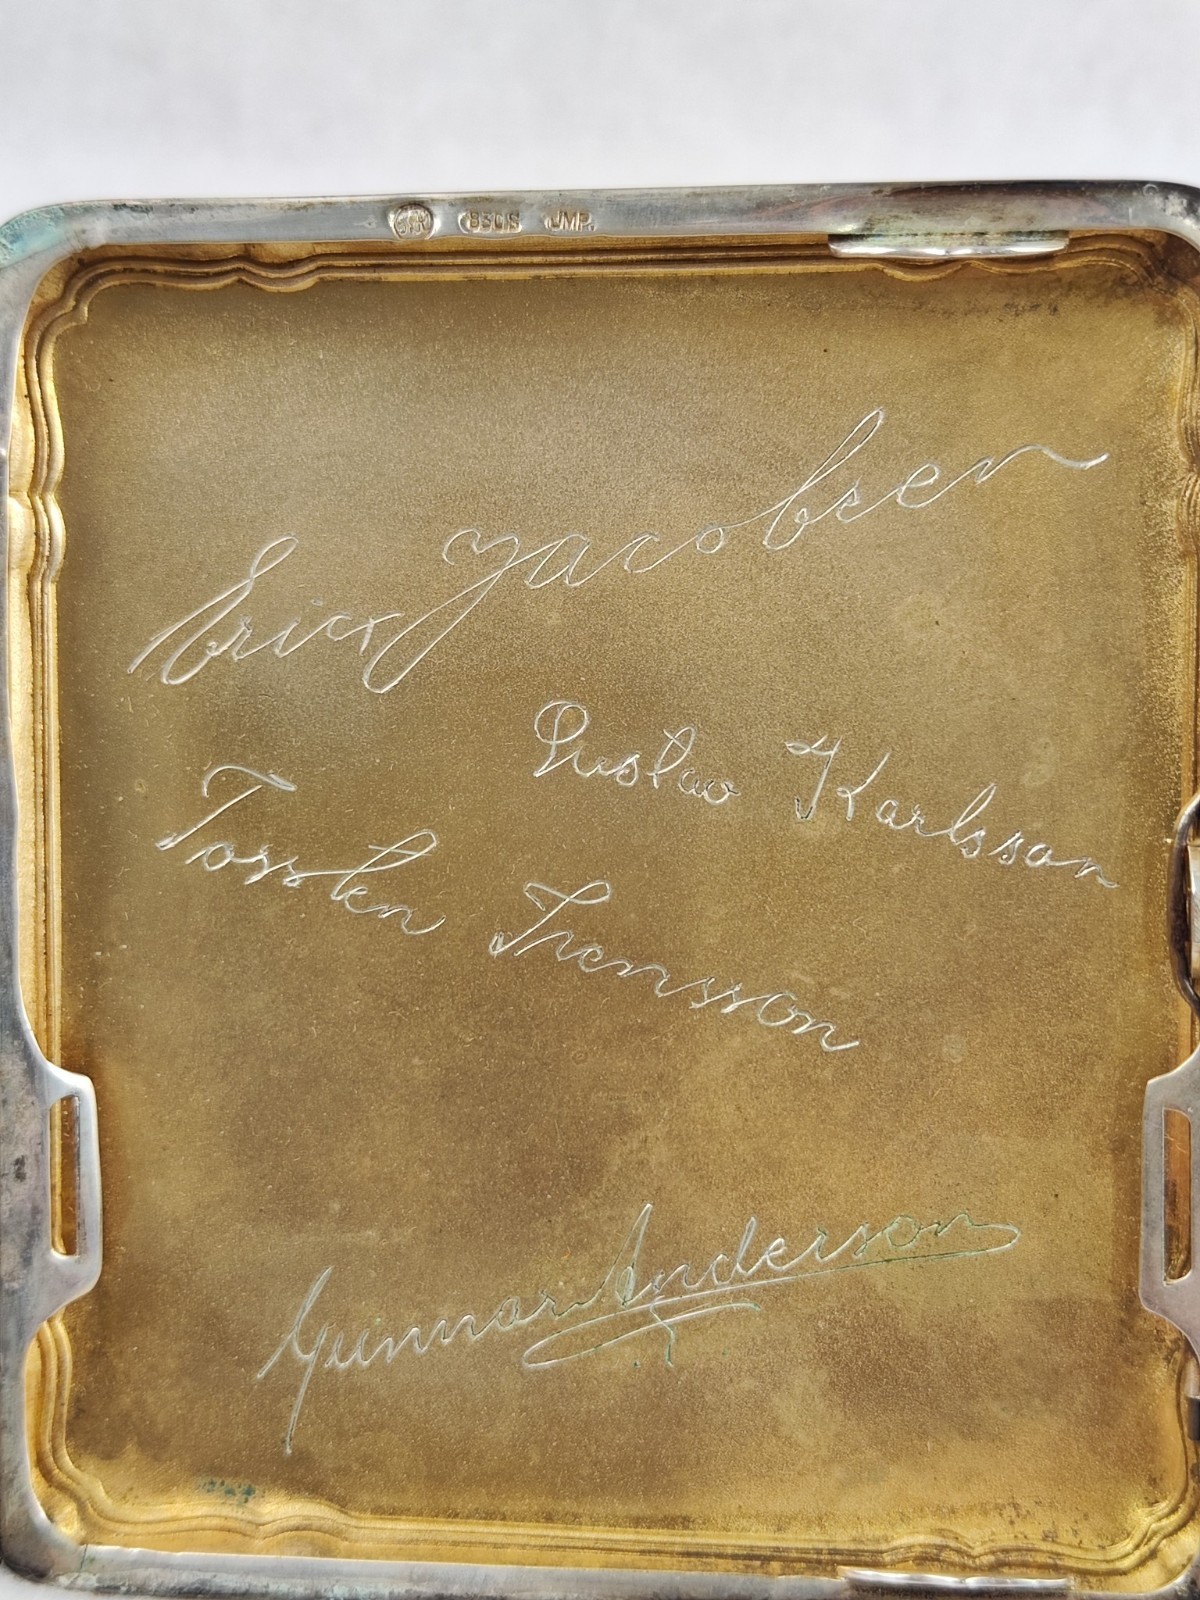 830 S JMP.
Erick Jacobsen
Gustav Karlsson
Torsten Svensson
Gunnar Anderson